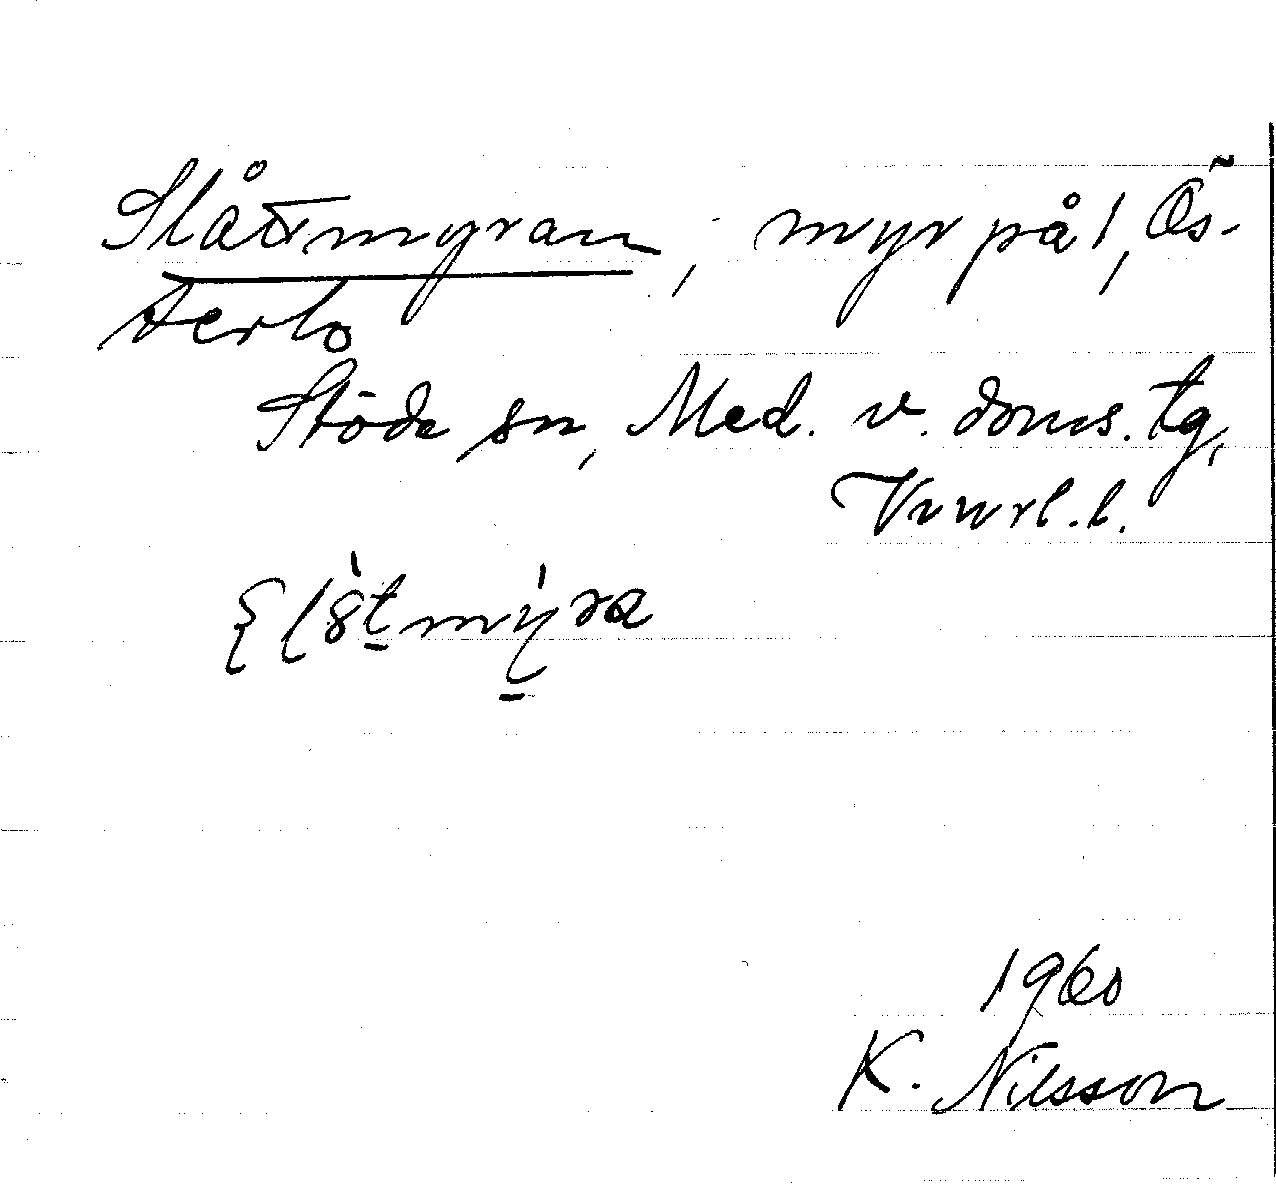 Slåttmyran, myr på 1, Ös-
terlo
Stöde sn, Med. v. doms. tg,
Vnrl. l.
1960
K. Nilsson